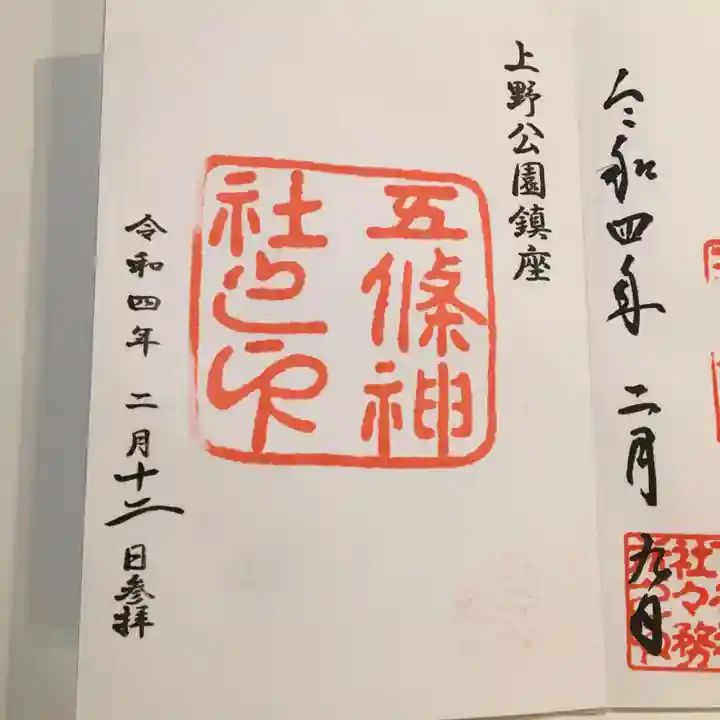 令和四年 二月 九日
社々務
上野公園鎮座
五條神
社之印
令和四年 二月十二日参拝